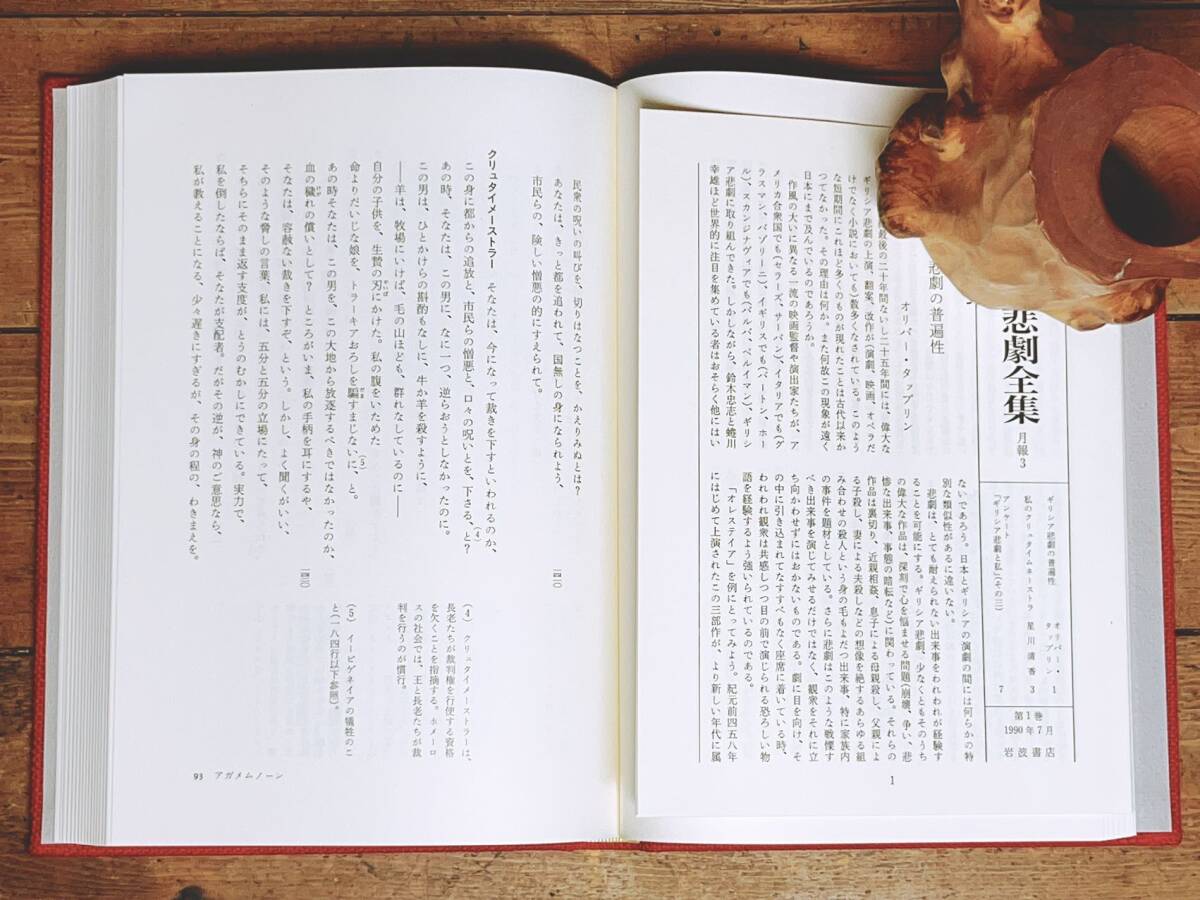 悲劇全集
月報3
ギリシア悲劇の普遍性
オリバー・タップリン 1
私のクリュタイムネーストラ
星川清香 3
アンケート
「ギリシア悲劇と私」(その三) 7
第1巻
1990年7月
岩波書店
悲劇の普遍性
オリバー・タップリン
最後の二十年間ないし二十五年間には、偉大な
ギリシア悲劇の上演、翻案、改作が(演劇、映画、オペラだ
けでなく小説においても)数多くなされている。このよう
な短期間にこれほど多くのものが現れたことは古代以来か
つてなかった。その理由は何か。また何故この現象が遠く
日本にまで及んでいるのであろうか。
作風の大いに異なる一流の映画監督や演出家たちが、ア
メリカ合衆国でも(セラーズ、サーバン)、イタリアでも(グ
ラスマン、パゾリーニ)、イギリスでも(バートン、ホー
ル)、スカンジナヴィアでも(バルバ、ベルイマン)、ギリシ
ア悲劇に取り組んできた。しかしながら、鈴木忠志と蜷川
幸雄ほど世界的に注目を集めている者はおそらく他にはい
ないであろう。日本とギリシアの演劇の間には何らかの特
別な類似性があるに違いない。
悲劇は、とても耐えられない出来事をわれわれが経験す
ることを可能にする。ギリシア悲劇、少なくともそのうち
の偉大な作品は、深刻で心を悩ませる問題(崩壊、争い、悲
惨な出来事、事態の暗転など)に関わっている。それらの
作品は裏切り、近親相姦、息子による母親殺し、父親によ
る子殺し、妻による夫殺しなどの想像を絶するあらゆる組
み合わせの殺人という身の毛もよだつ出来事、特に家族内
の事件を題材としている。さらに悲劇はこのような戦慄す
べき出来事を演じてみせるだけではなく、観衆をそれに立
ち向かわせずにはおかないものである。劇に目を向け、そ
の中に引き込まれてなすすべもなく座席に着いている時、
われわれ観衆は共感しつつ目の前で演じられる恐ろしい物
語を経験するよう強いられているのである。
『オレステイア』を例にとってみよう。紀元前四五八年
にはじめて上演されたこの三部作が、より新しい年代に属
1
民衆の呪いの叫びを、切りはなつことを、かえりみぬとは?
あなたは、きっと都を追われて、国無しの身になられよう、 一四一〇
市民らの、険しい憎悪の的にすえられて。
クリュタイメーストラー そなたは、今になって裁きを下すといわれるのか、
この身に都からの追放と、市民らの憎悪と、口々の呪いとを、下さる、と?(4)
あの時、そなたは、この男に、なに一つ、逆らおうとしなかったのに。
この男は、ひとかけらの斟酌もなしに、牛か羊を殺すように、
——羊は、牧場にいけば、毛の山ほども、群れなしているのに——
自分の子供を、生贄の刃にかけた。私の腹をいためた
命よりだいじな娘を、トラーキアおろしを騙すまじないに、と。(5)
あの時そなたは、この男を、この大地から放逐するべきではなかったのか、
血の穢れの償いとして? ところがいま、私の手柄を耳にするや、 一四二〇
そなたは、容赦ない裁きを下すぞ、という。しかし、よく聞くがいい、
そのような脅しの言葉、私には、五分と五分の立場にたって、
そちらにそのまま返す支度が、とうのむかしにできている。実力で、
私を倒したならば、そなたが支配者。だがその逆が、神のご意思なら、
私が教えることになる、少々遅きにすぎるが、その身の程の、わきまえを。
(4) クリュタイメーストラーは、
長老たちが裁判権を行使する資格
を欠くことを指摘する。ホメーロ
スの社会では、王と長老たちが裁
判を行うのが慣行。
(5) イーピゲネイアの犠牲のこ
と(一八四行以下参照)。
93 アガメムノーン